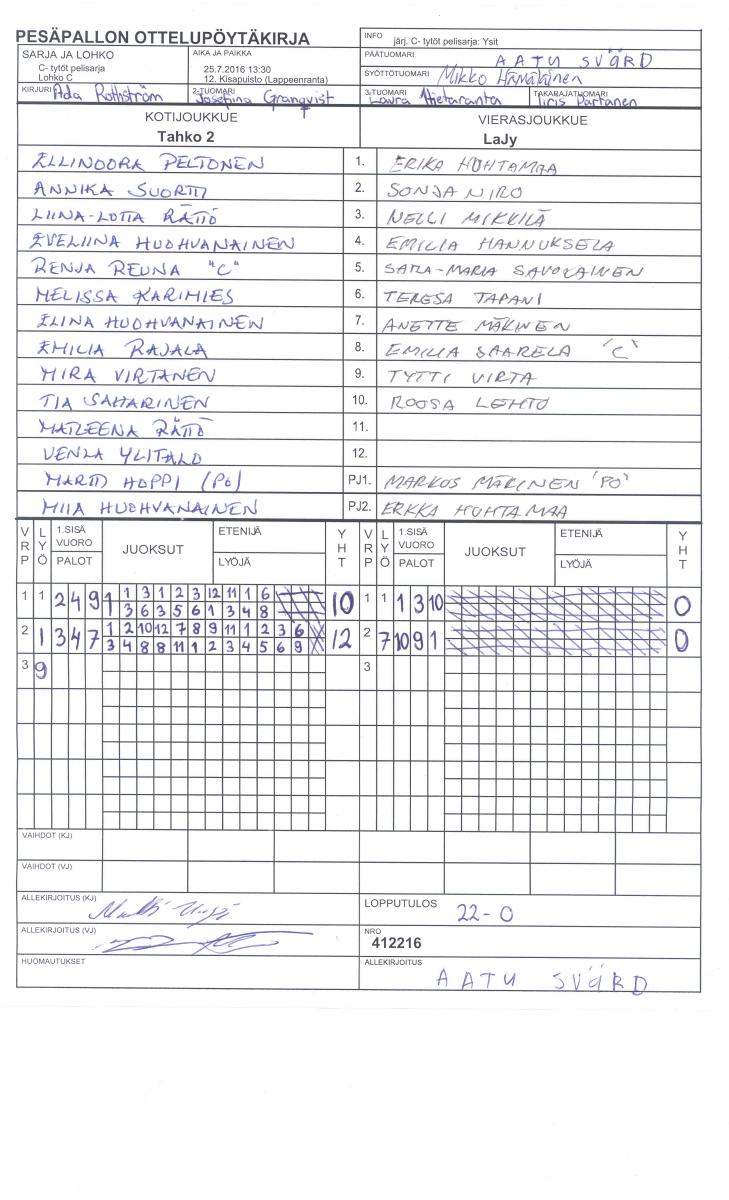 PESÄPALLON OTTELUPÖYTÄKIRJA
INFO järj. C- tytöt pelisarja: Ysit
SARJA JA LOHKO
C- tytöt pelisarja
Lohko C
AIKA JA PAIKKA
25.7.2016 13:30
12. Kisapuisto (Lappeenranta)
PÄÄTUOMARI AATU SVÄRD
SYÖTTÖTUOMARI Mikko Hämäläinen
KIRJURI Ada Rothström
2-TUOMARI Josefina Granqvist
3-TUOMARI Laura Hietaranta
TAKARAJATUOMARI Iiris Partanen
KOTIJOUKKUE VIERASJOUKKUE
Tahko 2 LaJy
ELLINOORA PELTONEN 1. ERIKA HUHTAMAA
ANNIKA SUORTTI 2. SONJA NIRO
LIINA-LOTTA RÄTTÖ 3. NELLI MIKKILÄ
EVELIINA HUOHVANAINEN 4. EMILIA HANNUKSELA
RENJA REUNA "C" 5. SATA-MARIA SAVOLAINEN
MELISSA KARIMIES 6. TERESA TAPANI
ELINA HUOHVANAINEN 7. ANETTE MÄKINEN
EMILIA RAJALA 8. EMILIA SAARELA 'C'
MIRA VIRTANEN 9. TYTTI VIRTA
TIA SAHARINEN 10. ROOSA LEHTO
MATLEENA RÄTTÖ 11.
VENLA YLITALO 12.
MARTTI HOPPI (PO) PJ1. MARKUS MÄKINEN 'PO'
MIIA HUOHVANAINEN PJ2. ERKKA HUHTAMAA
VRP LYÖ 1.SISÄ VUORO PALOT JUOKSUT ETENIJÄ LYÖJÄ YHT VRP LYÖ 1.SISÄ VUORO PALOT JUOKSUT ETENIJÄ LYÖJÄ YHT
1 1 2 4 9 1 1 3 1 2 3 12 11 1 6 10 1 1 1 3 10 0
3 6 3 5 6 1 3 4 8
2 1 3 4 7 1 2 10 12 7 8 9 11 1 2 3 6 12 2 7 10 9 1 0
3 4 8 8 11 1 2 3 4 5 6 9
3 9 3
VAIHDOT (KJ)
VAIHDOT (VJ)
ALLEKIRJOITUS (KJ)
LOPPUTULOS 22-0
ALLEKIRJOITUS (VJ)
NRO
412216
HUOMAUTUKSET
ALLEKIRJOITUS AATU SVÄRD